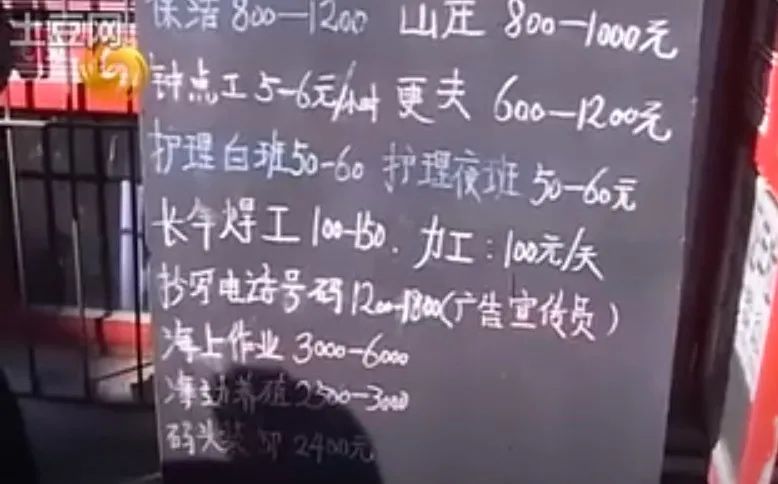 土豆网
保洁 800—1200 山庄 800—1000元
钟点工 5-6元/小时 更夫 600—1200元
护理白班50-60 护理夜班 50-60元
长年焊工 100-150. 力工:100元/天
抄写电话号码 1200-1800(广告宣传员)
海上作业 3000-6000
海 养殖 2500-3000
码头装卸 2400元